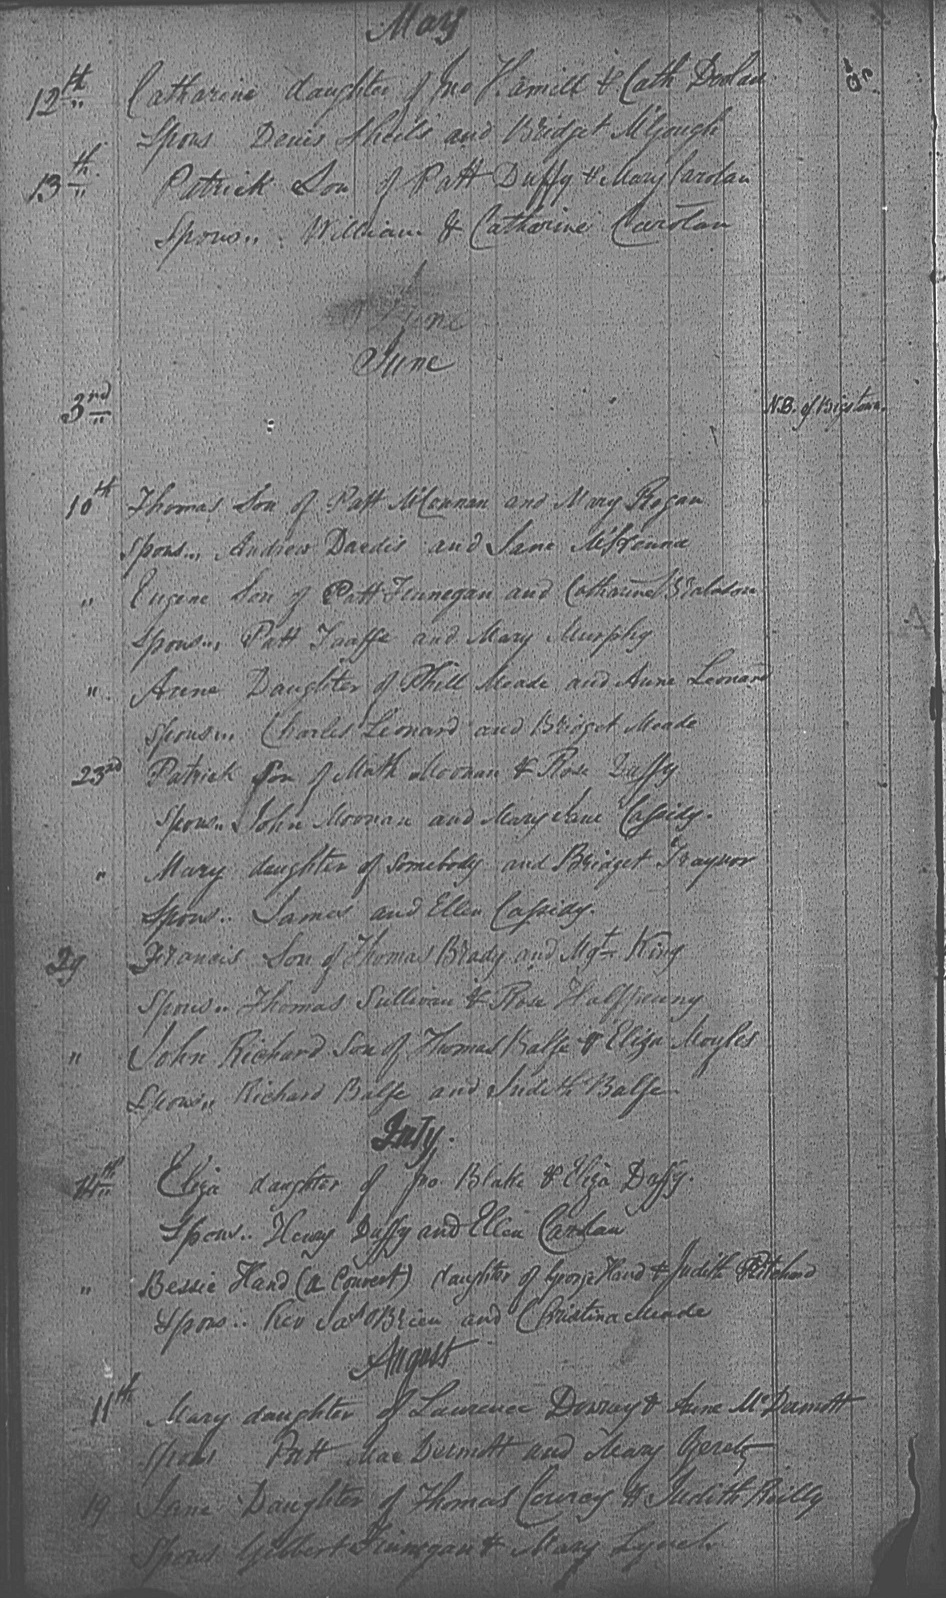 May
12th Catharine daughter of Jno Hamill & Cath Doolan
Spons Denis Sheils and Bridget McGough
13th Patrick Son of Patt Duffy & Mary Carolan
Spons.. William & Catharine Carolan
June
June
3rd
N.B. of Bigstown.
10th Thomas Son of Patt and Mary Rogan
Spons.., Andrew Dardis and Jane McKenna
" Eugene Son of Patt Finnegan and Catharine
Spons.., Patt Taaffe and Mary Murphy
" Anne Daughter of Phill Meade and Anne Leonard
Spons... Charles Leonard and Bridget Meade
23rd Patrick Son of Math Moonan & Rose Duffy
Spons.. John Moonan and Mary Jane Cassidy.
" Mary daughter of Somebody and Bridget Traynor
Spons.. James and Ellen Cassidy.
29 Francis Son of Thomas Brady and Mgt King
Spons.. Thomas Sullivan & Rose Halfpenny
" John Richard Son of Thomas Balfe & Eliza Moyles
Spons.. Richard Balfe and Judith Balfe
July.
14th Eliza daughter of Jno Blake & Eliza Duffy.
Spons.. Henry Duffy and Ellen Carolan
" Bessie Hand (a Convert) daughter of George Hand & Judith Pritchard
Spons.. Rev Jas OBrien and Christina Meade
August
11th Mary daughter of Laurence & Anne McDermott
Spons Patt MacDermott and Mary
19 Jane Daughter of Thomas Conroy & Judith Reilly
Spons Gilbert Finnegan & Mary Lynch